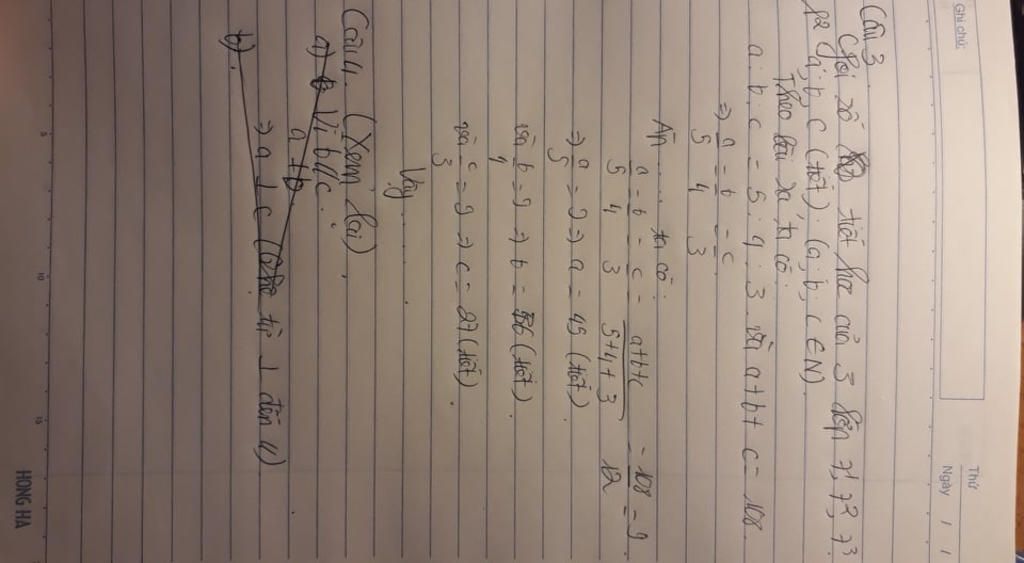 Ghi chú:
Thứ
Ngày / /
Câu 3.
Gọi số tiết học của 3 lớp 7¹, 7², 7³
là a; b; c (tiết), (a; b; c ∈ N)
Theo bài ra ta có
a : b : c = 5 : 4 : 3 và a + b + c = 108
⇒ a/5 = b/4 = c/3
Áp ..... ta có:
a/5 = b/4 = c/3 = a+b+c/5+4+3 = 108/12 = 9.
⇒ a/5 = 9 ⇒ a = 45 (tiết).
và b/4 = 9 ⇒ b = 36 (tiết).
và c/3 = 9 ⇒ c = 27 (tiết).
Vậy .....
Câu 4. (Xem lại).
a) Vì b // c.
a ⊥ b
⇒ a ⊥ c ( từ ⊥ đến //)
b).
5 10 15
HONG HA